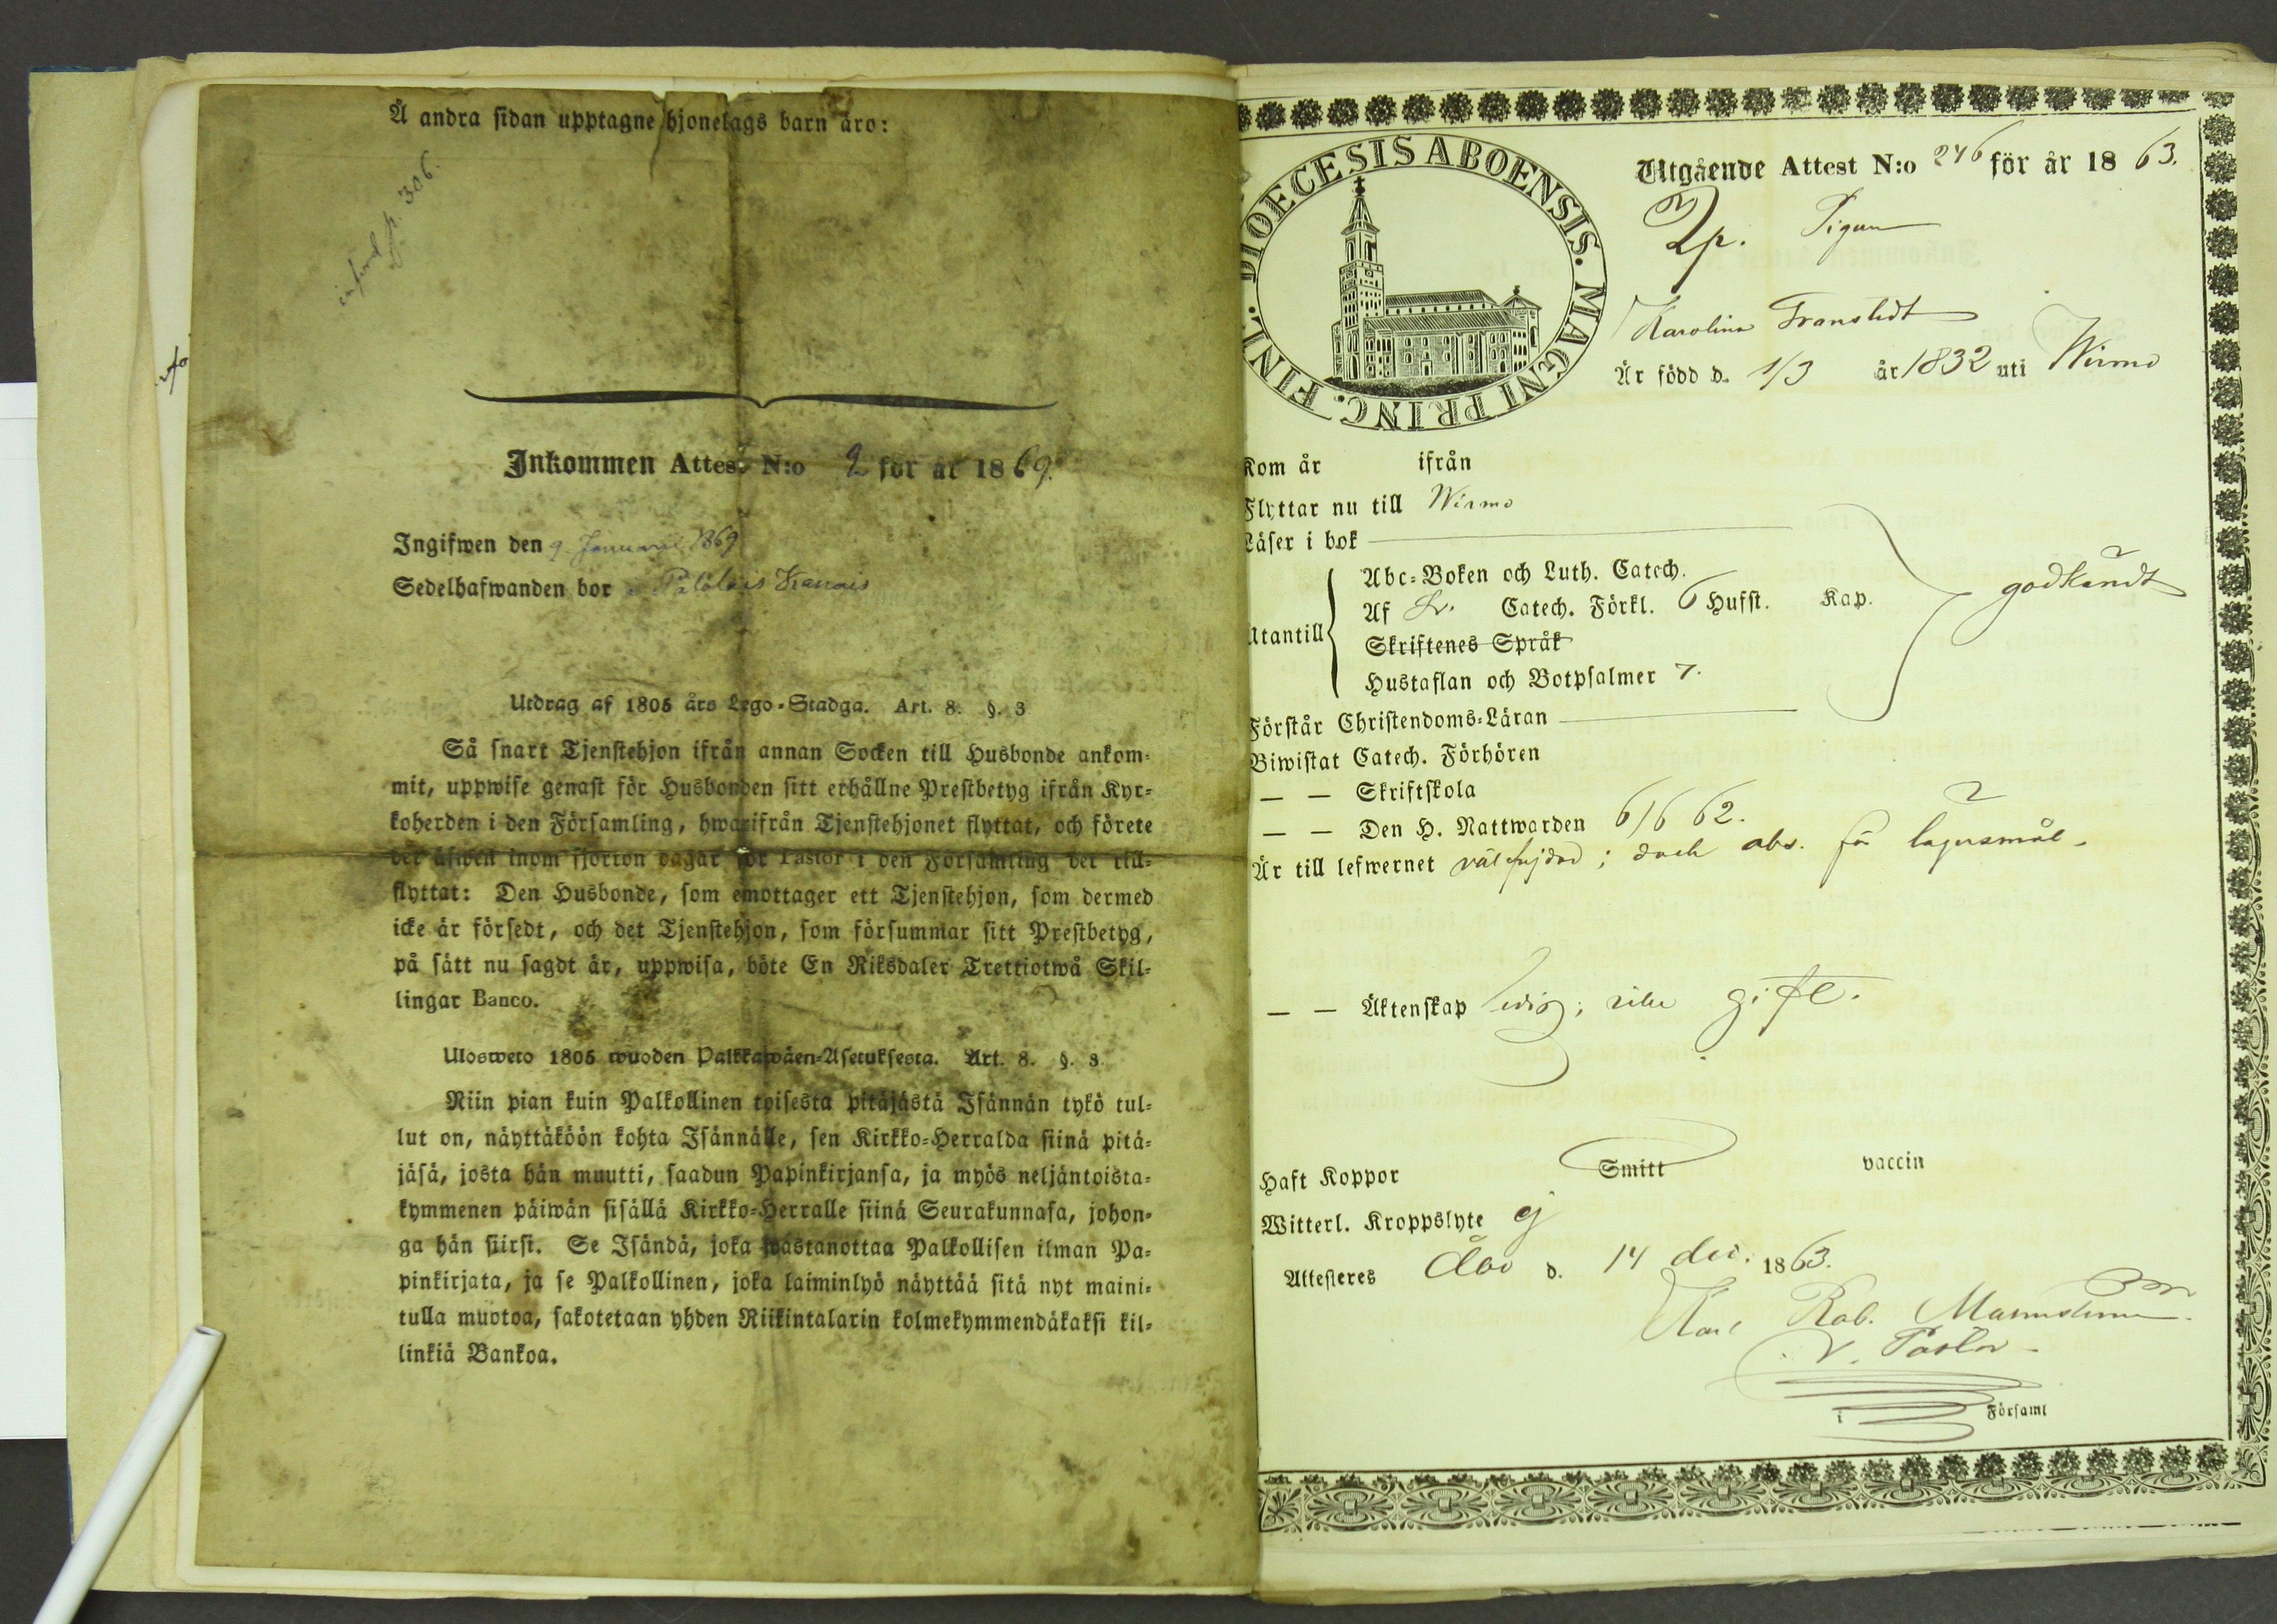 Å andra sidan upptagne hjonelags barn äro:
införd p. 306.
Inkommen Attest N:o 2 för år 1869.
Ingifwen den 9 Januarii 1869
Sedelhafwanden bor
Utdrag af 1805 års Lego-Stadga. Art. 8. §. 3
Så snart Tjenstehjon ifrån annan Socken till Husbonde ankom-
mit, uppwise genast för Husbonden sitt erhållne Prestbetyg ifrån Kyr-
koherden i den Församling, hwarifrån Tjenstehjonet flyttat, och förete
det äfwen inom fjorton dagar för Pastor i den Församling det till-
flyttat: Den Husbonde, som emottager ett Tjenstehjon, som dermed
icke är försedt, och det Tjenstehjon, som försummar sitt Prestbetyg,
på sätt nu sagdt är, uppwisa, böte En Riksdaler Trettiotwå Skil-
lingar Banco.
Ulosweto 1805 wuoden Palkkawäen-Asetuksesta. Art. 8. §. 3.
Niin pian kuin Palkollinen toisesta pitäjästä Isännän tykö tul-
lut on, näyttäköön kohta Isännälle, sen Kirkko-Herralda siinä pitä-
jäsä, josta hän muutti, saadun Papinkirjansa, ja myös neljäntoista-
kymmenen päiwän sisällä Kirkko-Herralle siinä Seurakunnasa, johon-
ga hän siirsi. Se Isändä, joka wastanottaa Palkollisen ilman Pa-
pinkirjata, ja se Palkollinen, joka laiminlyö näyttää sitä nyt maini-
tulla muotoa, sakotetaan yhden Riikintalarin kolmekymmendäkaksi kil-
linkiä Bankoa.
DIOECESIS ABOENSIS. MAGNI PRINC. FINL.
Utgående Attest N:o 246 för år 1863.
Pigan
Karolina Franstedt
Är född d. 1/3 år 1832 uti Wirmo
Kom år ifrån
Flyttar nu till Wirmo
Läser i bok
Abc-Boken och Luth. Catech.
Af Sv. Catech. Förkl. 6 Hufst. Kap. godkändt
Utantill
Skriftenes Språk
Hustaflan och Botpsalmer 7.
Förstår Christendoms-Läran
Biwistat Catech. Förhören
— — Skriftskola
— — Den H. Nattwarden 6/6 62.
Är till lefwernet välfrejdad; dock abs. för lägersmål.
— — Äktenskap ledig; gifte.
Haft Koppor Smitt vaccin
Witterl. Kroppslyte ej
Attesteres Åbo d. 14 dec. 1863.
Karl Rob. Malmström
v. Pastor
i Församl